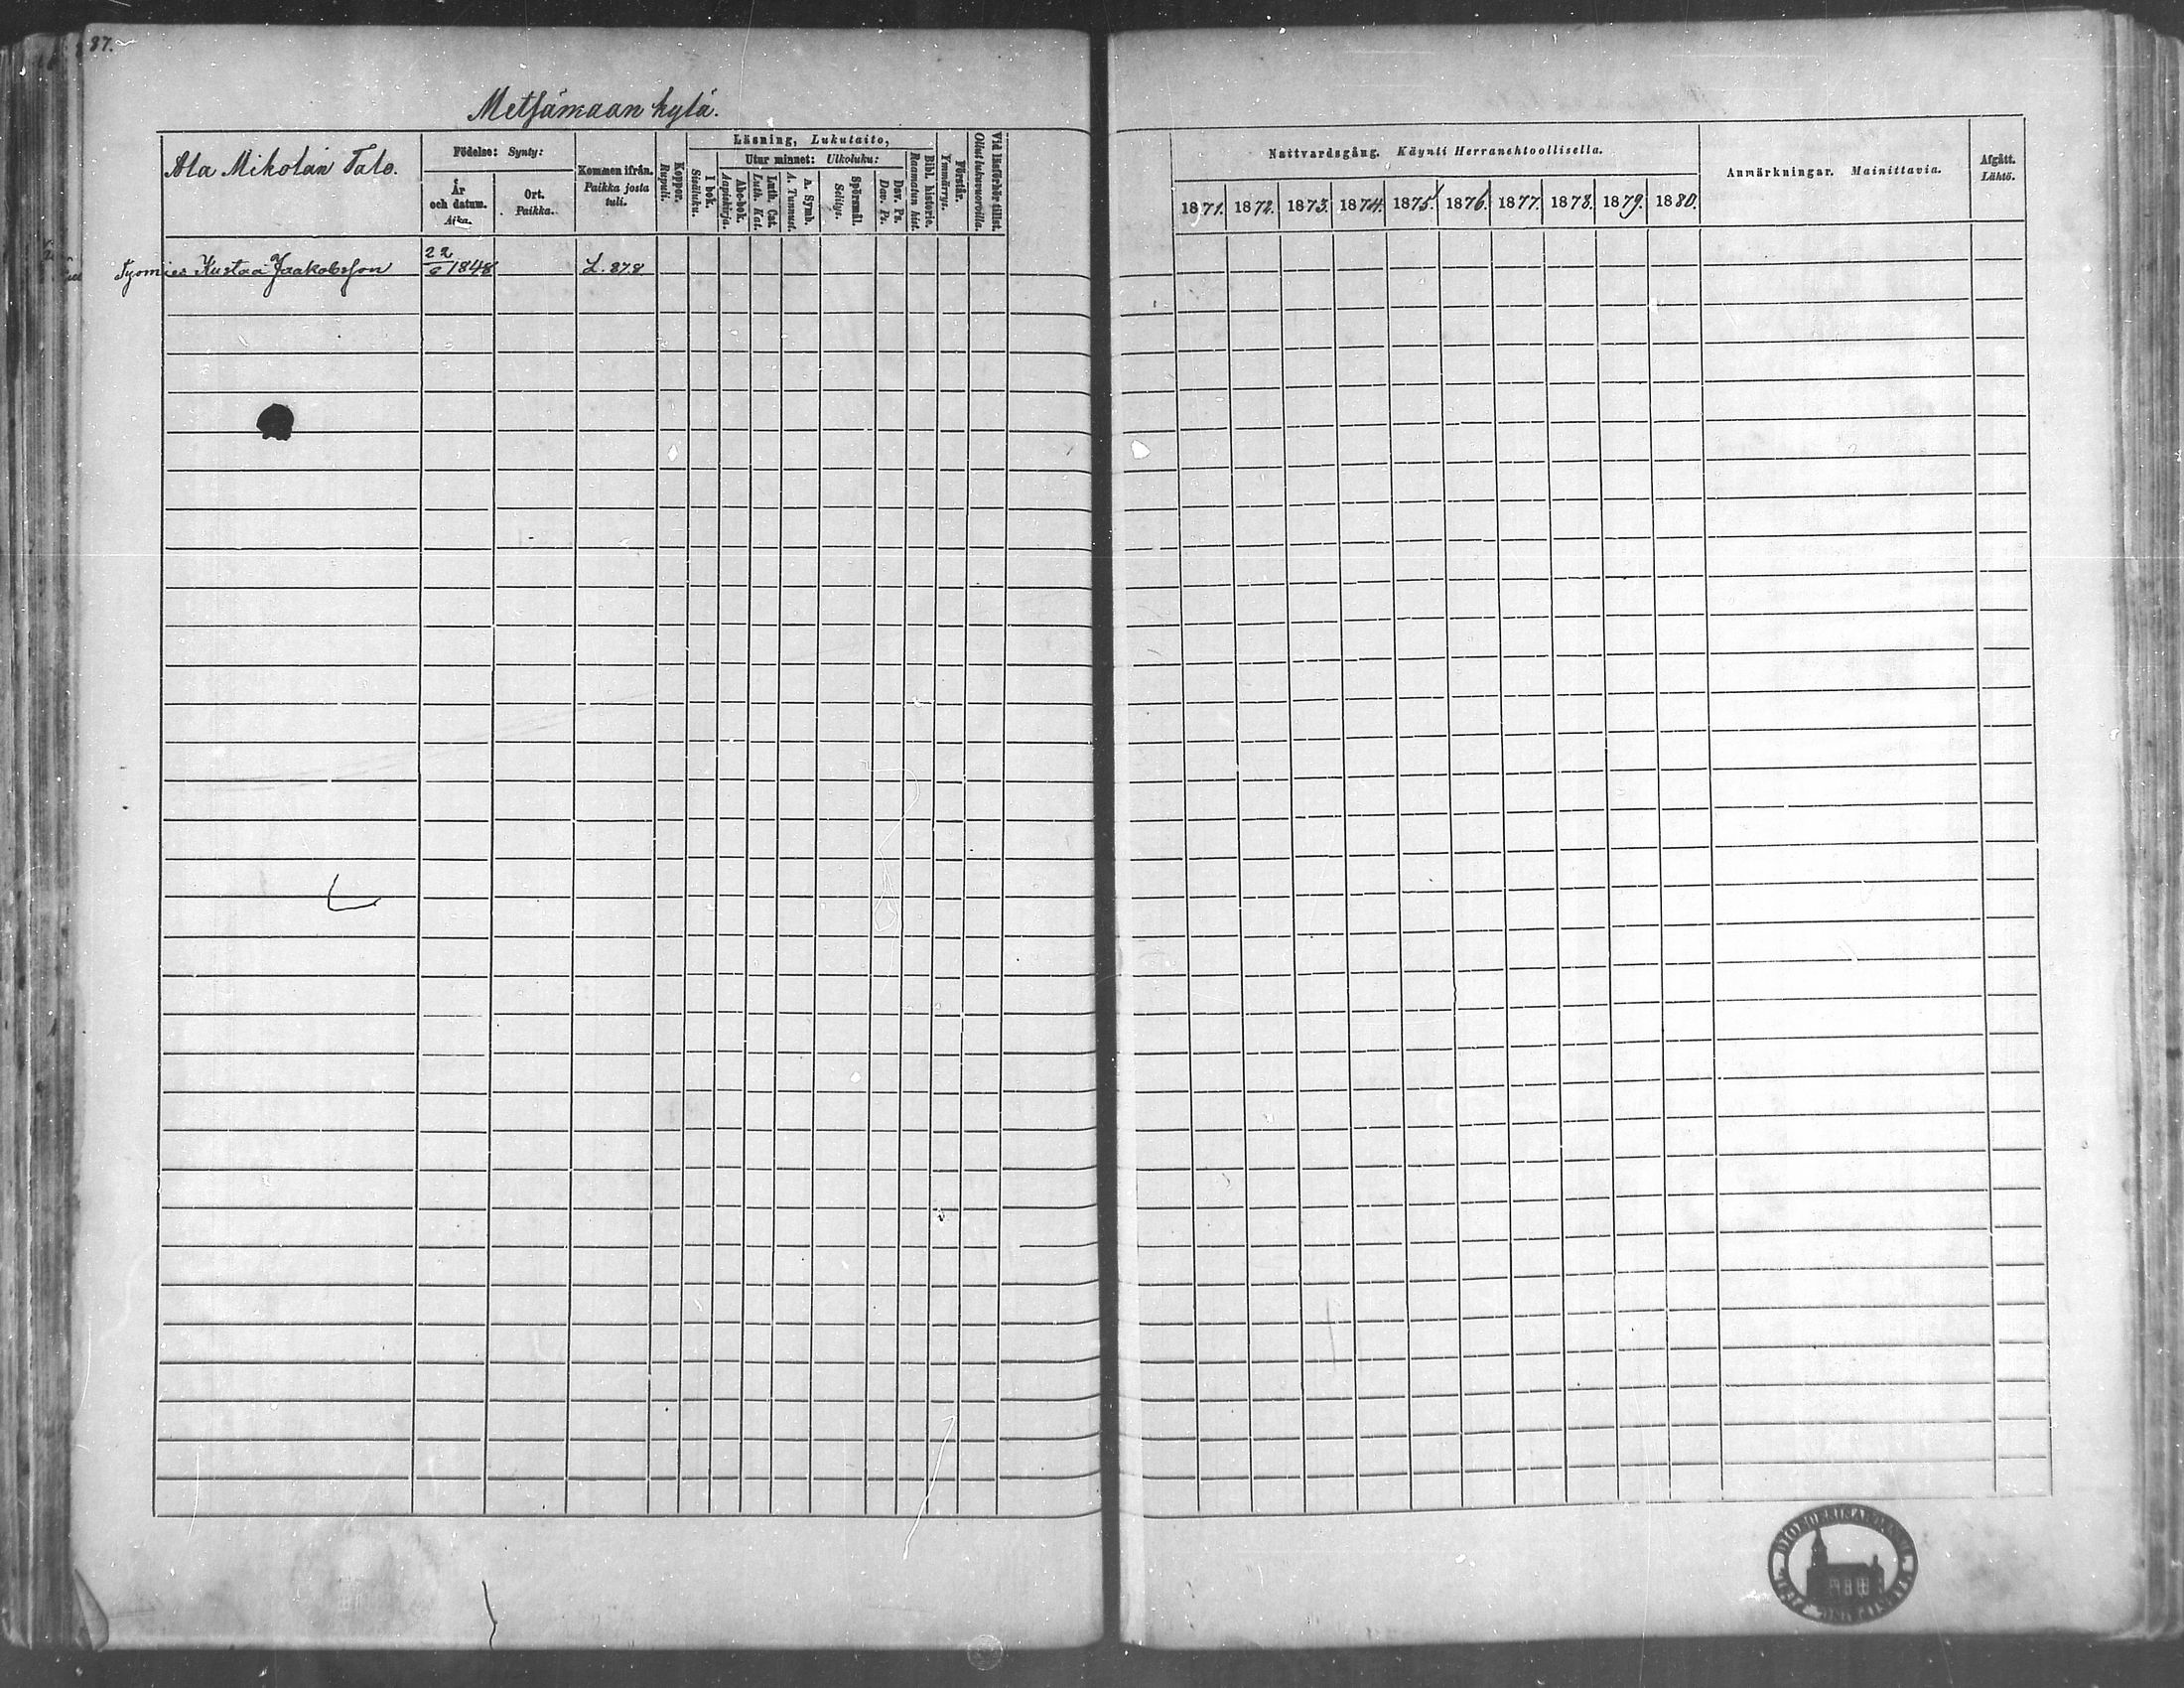 87.
Metsämaan kylä.
Ala Mikolan Talo.
Födelse: Synty:
År och datum. Aika.
Ort. Paikka.
Kommen ifrån. Paikka josta tuli.
Koppor. Rupuli.
Läsning, Lukutaito,
I bok. Sisäluku.
Utur minnet: Ulkoluku:
Abc-bok. Aapiskirja.
Luth. Cat. Luth. Kat.
A. Symb. A. Tunnust.
Spörsmål. Selitys.
Dav. Ps. Dav. Ps.
Bibl. historie. Raamatun hist.
Förstår. Ymmärrys.
Vid läsförhör tillst. Ollut lukuvuoroilla.
Nattvardsgång. Käynti Herranehtoollisella.
1871. 1872. 1873. 1874. 1875. 1876. 1877. 1878. 1879. 1880.
Anmärkningar. Mainittavia.
Afgått. Lähtö.
Tyomies Kustaa Jaakobsson 22/6 1848 L. 878